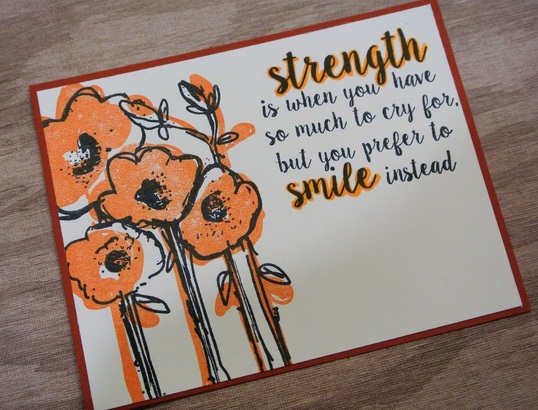 strength
is when you have
so much to cry for,
but you prefer to
smile instead